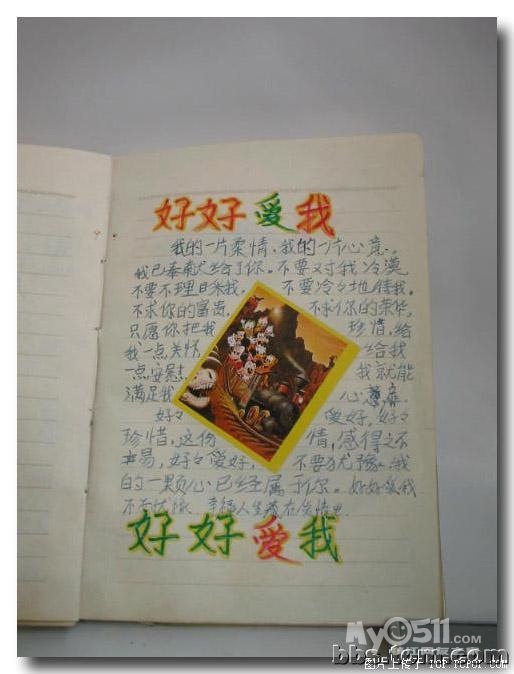 好好爱我
我的一片柔情、我的一片心意。
我已奉献给了你。不要对我冷漠
不要不理自来我, 不要冷々地待我。
不求你的富贵, 不求你的荣华,
只愿你把我 珍惜,给
我一点关怀 给我
一点安慰 我就能
满足我 心意
好々 爱好,好々
珍惜,这份 情,感得之不
易,好々爱好, 不要犹豫,我
的一颗心已经属于你。好好爱我
不再忧愁 幸福人生藏在
好好爱我
My0511.com
bbs.
图片上传于